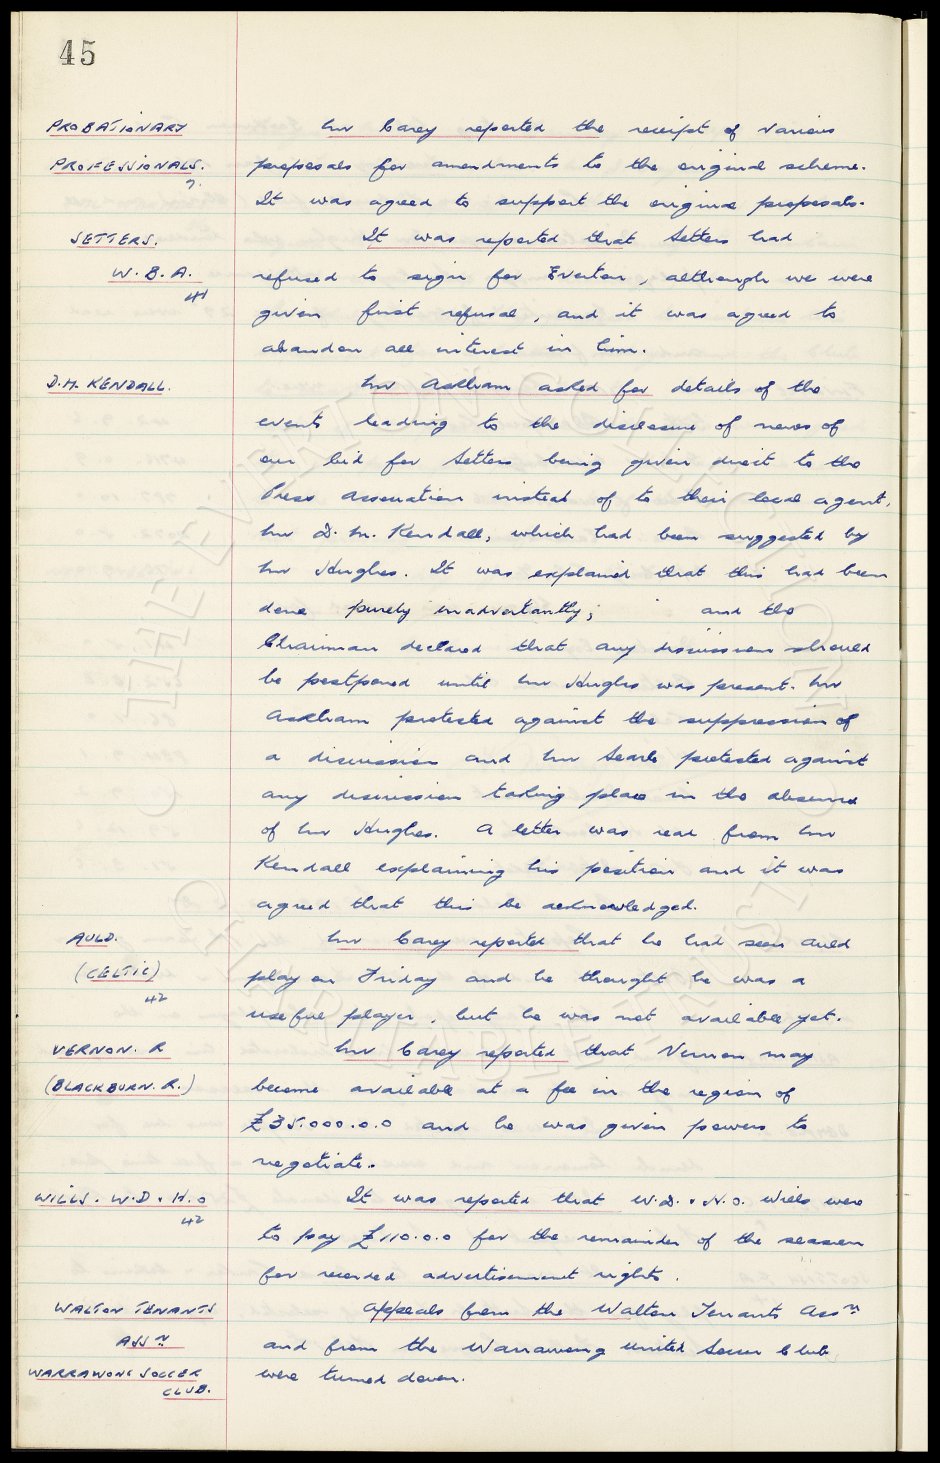 45
PROBATIONARY
PROFESSIONALS.
7.
Mr Carey reported the receipt of various
proposals for amendments to the original scheme.
It was agreed to support the original proposals.
SETTERS.
W.B.A.
41
It was reported that Setters had
refused to sign for Everton, although we were
given first refusal, and it was agreed to
abandon all interest in him.
D.H. KENDALL.
Mr Askham asked for details of the
events leading to the disclosure of news of
our bid for Setters being given direct to the
Press Association instead of to their local agent,
Mr D. M. Kendall, which had been suggested by
Mr Hughes. It was explained that this had been
done purely inadvertantly; and the
Chairman declared that any discussion should
be postponed until Mr Hughes was present. Mr
Askham protested against the suppression of
a discussion and Mr Searle protested against
any discussion taking place in the absence
of Mr Hughes. A letter was read from Mr
Kendall explaining his position and it was
agreed that this be acknowledged.
AULD.
(CELTIC)
42
Mr Carey reported that he had seen Auld
play on Friday and he thought he was a
useful player, but he was not available yet.
VERNON. R
(BLACKBURN. R.)
Mr Carey reported that Vernon may
become available at a fee in the region of
£35.000.0.0 and he was given powers to
negotiate.
WILLS. W.D. & H.O
42
It was reported that W.D. & H.O. Wills were
to pay £110.0.0 for the remainder of the season
for record advertisement rights.
WALTON TENANTS
ASSN
WARRAWONG SOCCER
CLUB.
Appeals from the Walton Tenants Assn
and from the Warrawong United Soccer Club
were turned down.
THE EVERTON COLLECTION
CHARITABLE TRUST